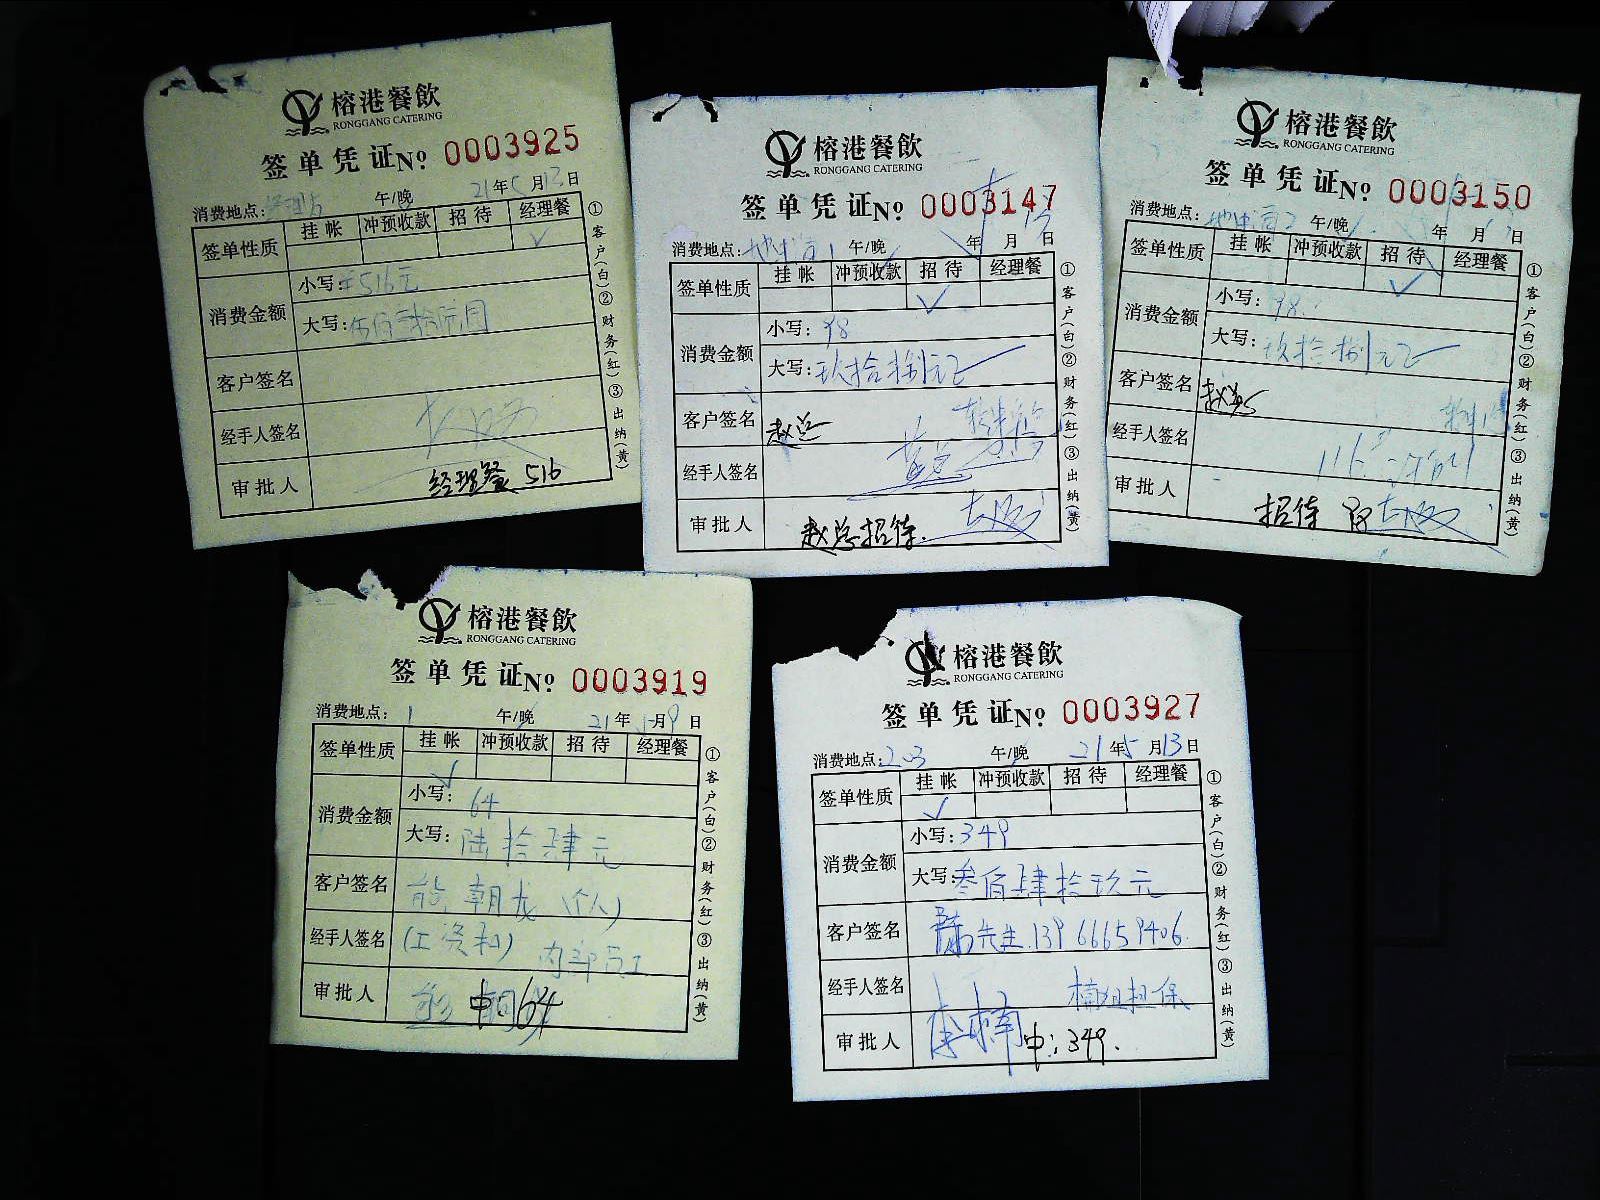 榕港餐飲
RONGGANG CATERING
签单凭证No 0003925
消费地点: 午/晚 21年5月13日
签单性质 挂帐 冲预收款 招待 经理餐
✓
消费金额 小写: 516元
大写:
客户签名
经手人签名
审批人 经理餐 516
①客户(白)②财务(红)③出纳(黄)
榕港餐飲
RONGGANG CATERING
签单凭证No 0003147
消费地点: 午/晚 年 月 日
签单性质 挂帐 冲预收款 招待 经理餐
✓
消费金额 小写: 98
大写: 玖拾捌元正
客户签名 赵总
经手人签名
审批人 赵总招待.
①客户(白)②财务(红)③出纳(黄)
榕港餐飲
RONGGANG CATERING
签单凭证No 0003150
消费地点: 午/晚 年 月 日
签单性质 挂帐 冲预收款 招待 经理餐
✓
消费金额 小写: 98.
大写: 玖拾捌元正
客户签名 赵总
经手人签名
审批人 招待
①客户(白)②财务(红)③出纳(黄)
榕港餐飲
RONGGANG CATERING
签单凭证No 0003919
消费地点: 1 午/晚 21年 月9日
签单性质 挂帐 冲预收款 招待 经理餐
✓
消费金额 小写: 64
大写: 陆拾肆元
客户签名 熊朝龙(个人)
经手人签名 内部员工
审批人 64
①客户(白)②财务(红)③出纳(黄)
榕港餐飲
RONGGANG CATERING
签单凭证No 0003927
消费地点: 203 午/晚 21年5月13日
签单性质 挂帐 冲预收款 招待 经理餐
✓
消费金额 小写: 349
大写: 叁佰肆拾玖元
客户签名 先生.13966659406.
经手人签名 楠姐担保
审批人 李楠 中:349.
①客户(白)②财务(红)③出纳(黄)